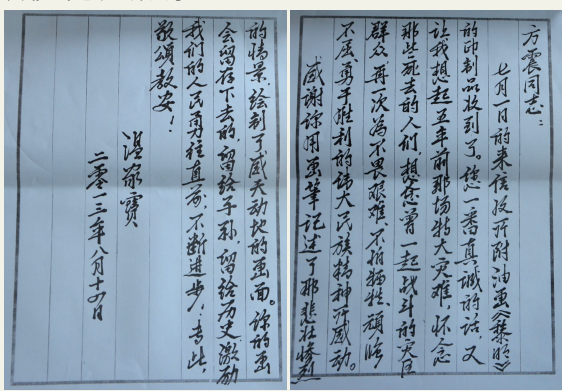 方震同志：
七月一日的来信及所附油画《黎明》
的印制品收到了。您一番真诚的话，又
让我想起五年前那场特大灾难，怀念
那些死去的人们，想念曾一起战斗的
群众，再一次为不畏艰难、不怕牺牲、顽强
不屈、勇于胜利的伟大民族精神所感动。
感谢你用画笔记述了那悲壮惨烈
的情景，绘制了感天动地的画面。你的画
会留存下去的，留给子孙，留给历史，激励
我们的人民勇往直前，不断进步！专此，
敬颂教安！
温家宝
二零一三年八月十四日